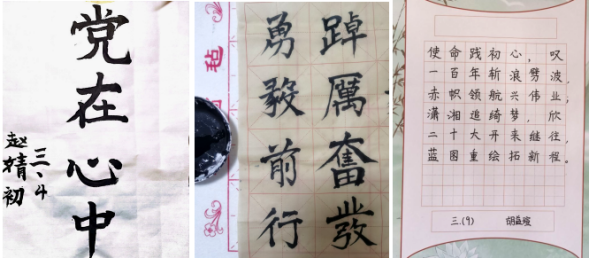 党在心中
三、4
赵婧初
踔厲奮發
勇毅前行
使命践初心，叹
一百年斩浪劈波，
赤帜领航兴伟业；
潇湘追绮梦，欣
二十大开来继往，
蓝图重绘拓新程。
三.(9) 胡